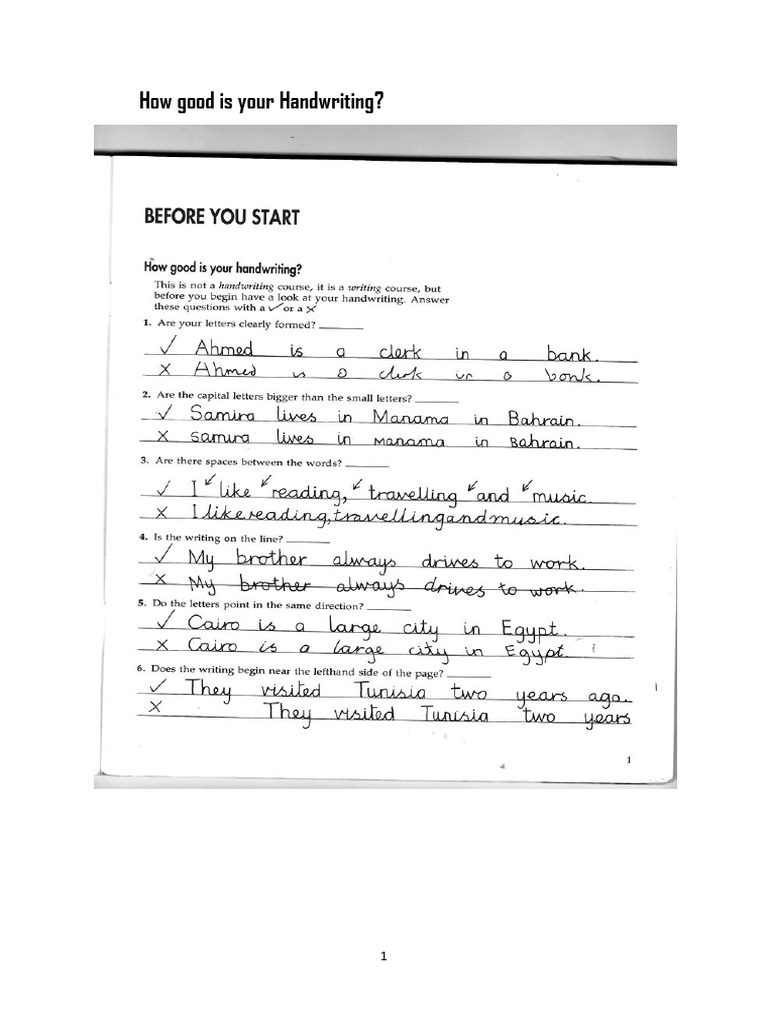 How good is your Handwriting?
BEFORE YOU START
How good is your handwriting?
This is not a handwriting course, it is a writing course, but
before you begin have a look at your handwriting. Answer
these questions with a ✓ or a ✗
1. Are your letters clearly formed? ______
✓ Ahmed is a clerk in a bank.
✗ Ahmed is a clerk in a bank.
2. Are the capital letters bigger than the small letters? ______
✓ Samira lives in Manama in Bahrain.
✗ samira lives in manama in Bahrain.
3. Are there spaces between the words? ______
✓ I like reading, travelling and music.
✗ Ilikereading,travellingandmusic.
4. Is the writing on the line? ______
✓ My brother always drives to work.
✗ My brother always drives to work.
5. Do the letters point in the same direction? ______
✓ Cairo is a large city in Egypt.
✗ Cairo is a large city in Egypt.
6. Does the writing begin near the lefthand side of the page? ______
✓ They visited Tunisia two years ago.
✗ They visited Tunisia two years
1
1